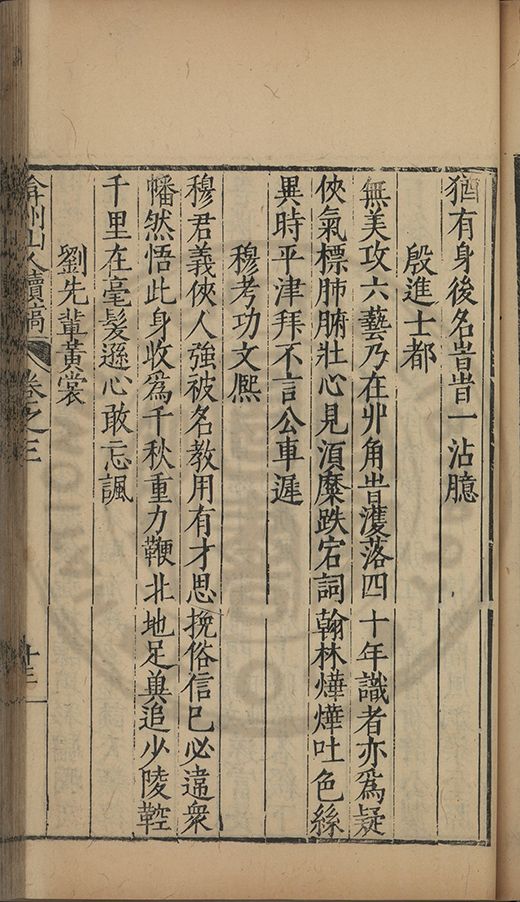 猶有身後名昔昔一沾臆
殷進士都
無美攻六藝乃在丱角昔濩落四十年識者亦為疑
俠氣標肺腑壯心見湏糜跌宕詞翰林燁燁吐色絲
異時平津拜不言公車遲
穆考功文熈
穆君義俠人強被名教用有才思挽俗信已必違衆
幡然悟此身收爲千秋重力鞭北地足奠追少陵鞚
千里在毫髮遜心敢忘諷
劉先輩黃裳
弇州山人續稿 卷之三 十三